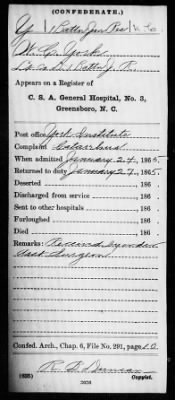 (CONFEDERATE.)
Y 1 Battn Jun Res N. C.
Co. 1 Battn J. R.
Appears on a Register of
C. S. A. General Hospital, No. 3,
Greensboro, N. C.
Post office York Institute
Complaint Catarrhus
When admitted January 24, 1865.
Returned to duty January 27, 1865
Deserted 186
Discharged from service 186
Sent to other hospitals 186
Furloughed 186
Died 186
Remarks:
Asst Surgeon
Confed. Arch., Chap. 6, File No. 291, page
(635) Copyist.